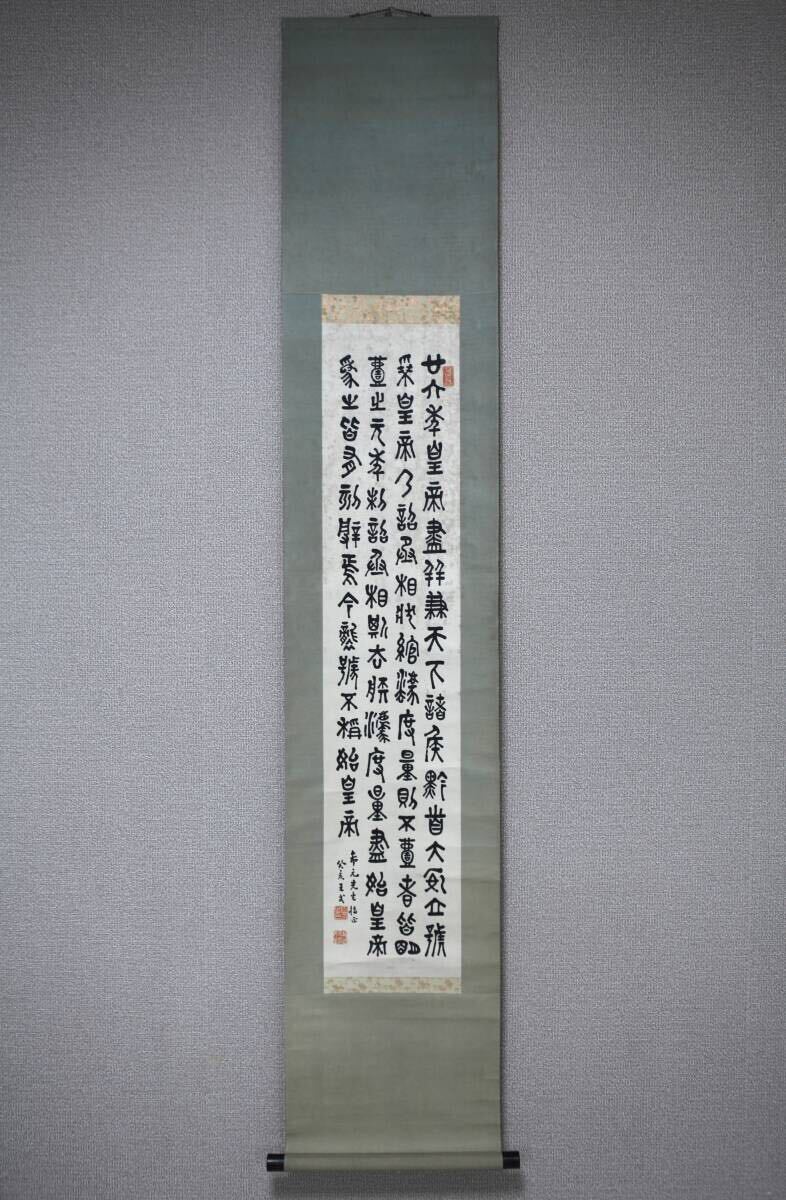 廿六年皇帝盡并兼天下諸侯黔首大安立號
爲皇帝乃詔丞相狀綰灋度量則不壹者皆明
壹之元年制詔丞相斯去疾灋度量盡始皇帝
爲之皆有刻辭焉今襲號不稱始皇帝
希元先生指正
癸亥王